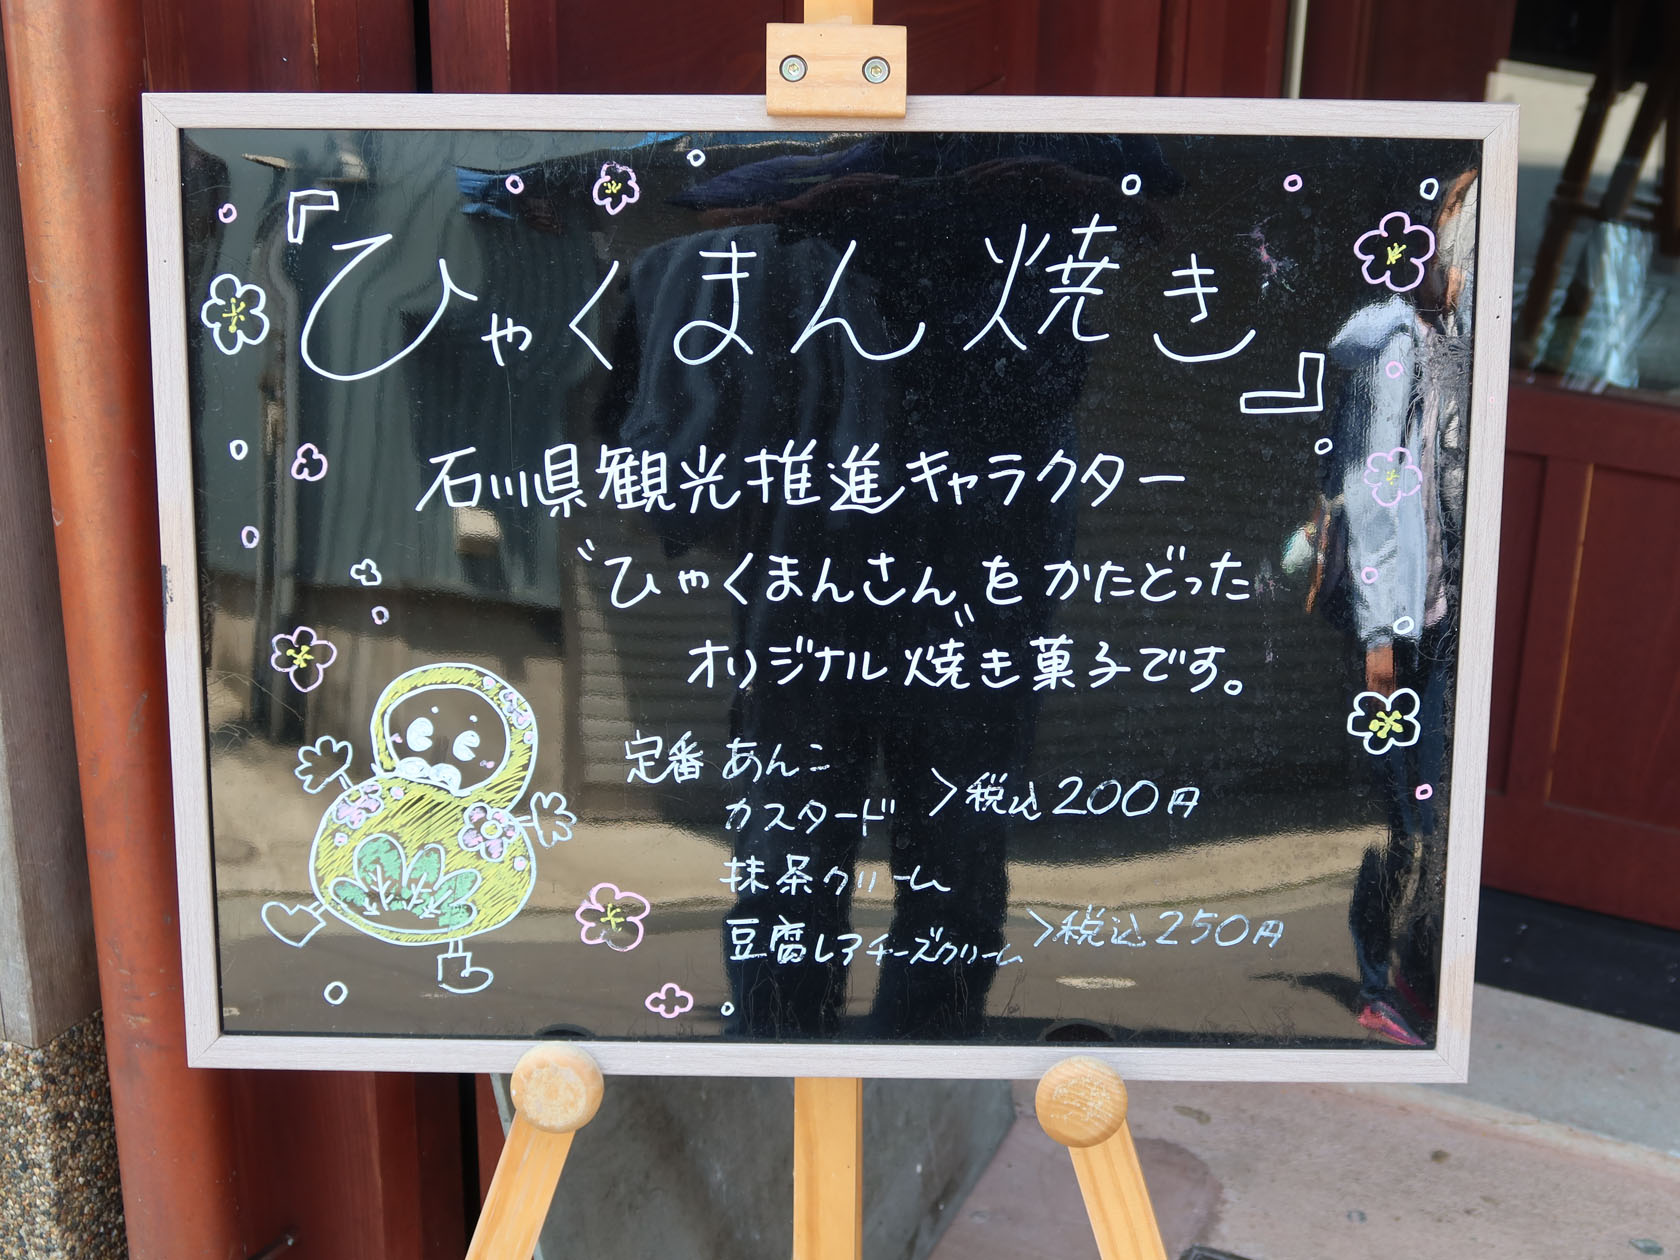 『ひゃくまん焼き』
石川県観光推進キャラクター
〝ひゃくまんさん〟を かたどった
オリジナル焼き菓子です。
定番 あんこ
カスタード >税込200円
抹茶クリーム
豆腐レアチーズクリーム >税込250円